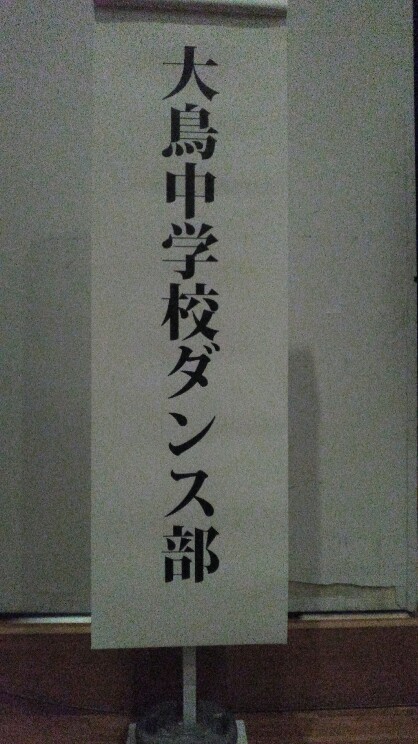 大鳥中学校ダンス部